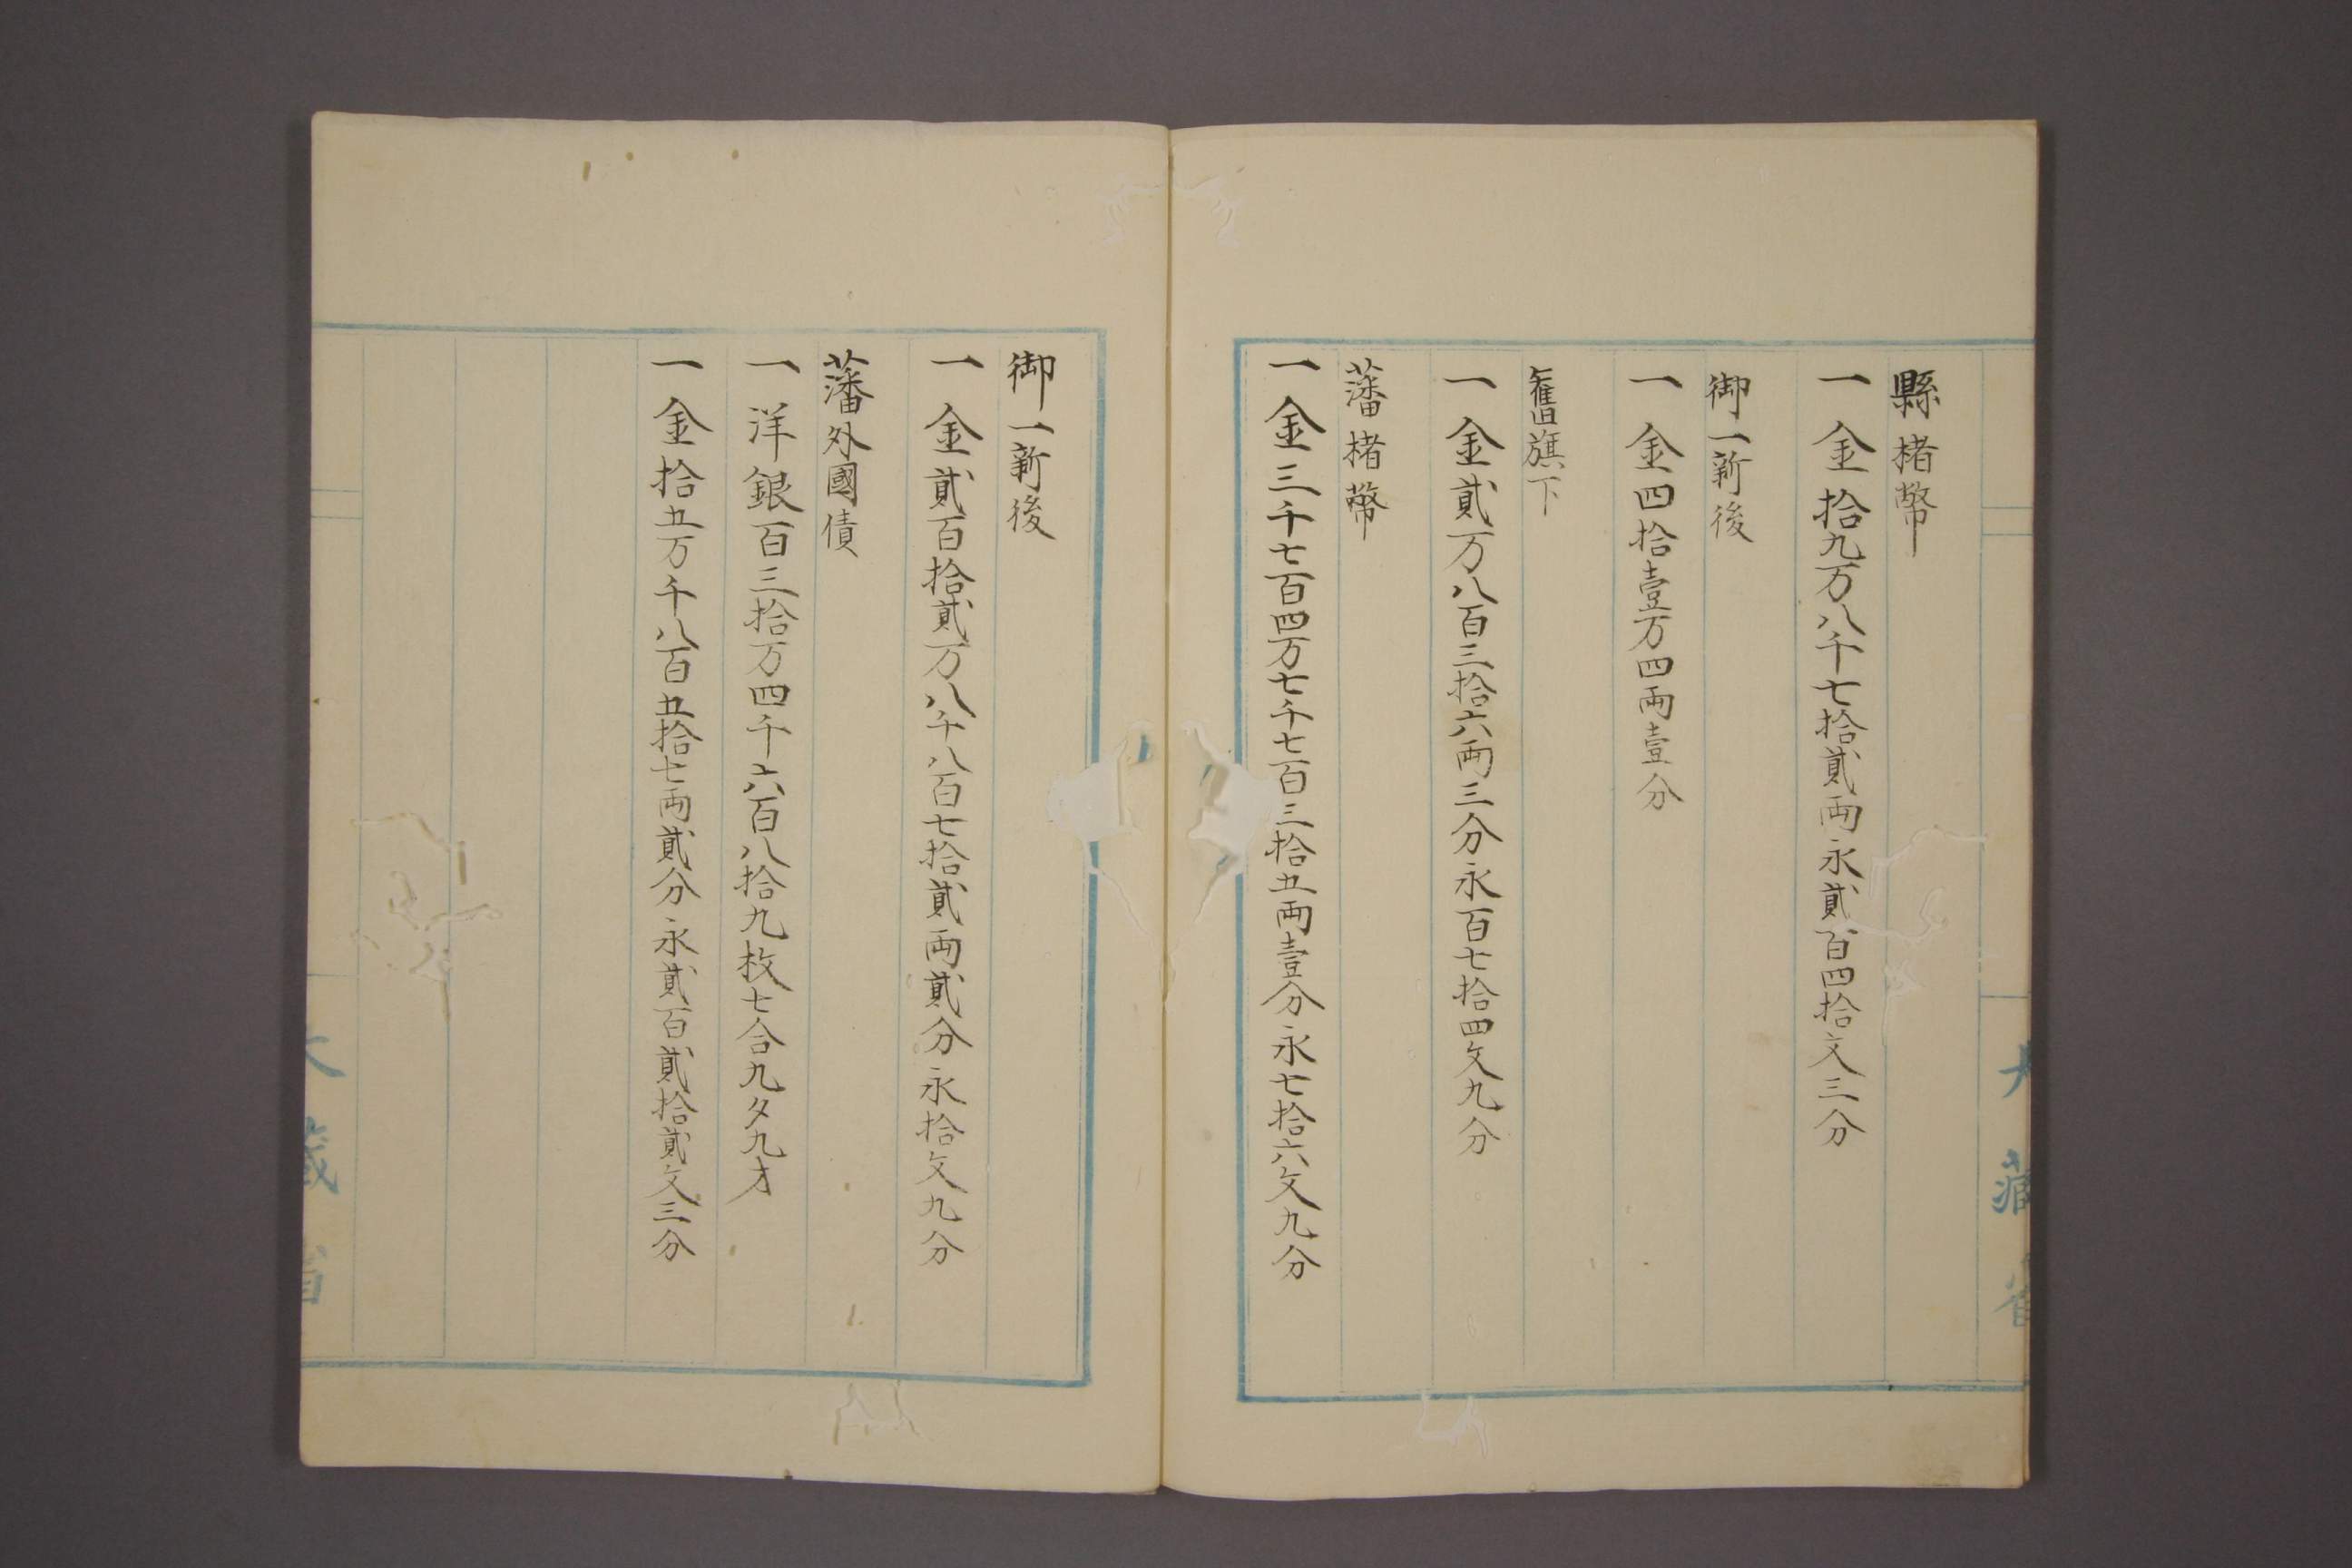 縣楮幣
一金拾九万八千七拾貳両永貳百四拾文三分
御一新後
一金四拾壹万四両壹分
舊旗下
一金貳万八百三拾六両三分永百七拾四文九分
藩楮幣
一金三千七百四万七千七百三拾五両壹分永七拾六文九分
御一新後
一金貳百拾貳万八千八百七拾貳両貳分永拾文九分
藩外國債
一洋銀百三拾万四千六百八拾九枚七合九夕九才
一金拾五万千八百五拾七両貳分永貳百貳拾貳文三分
大藏省